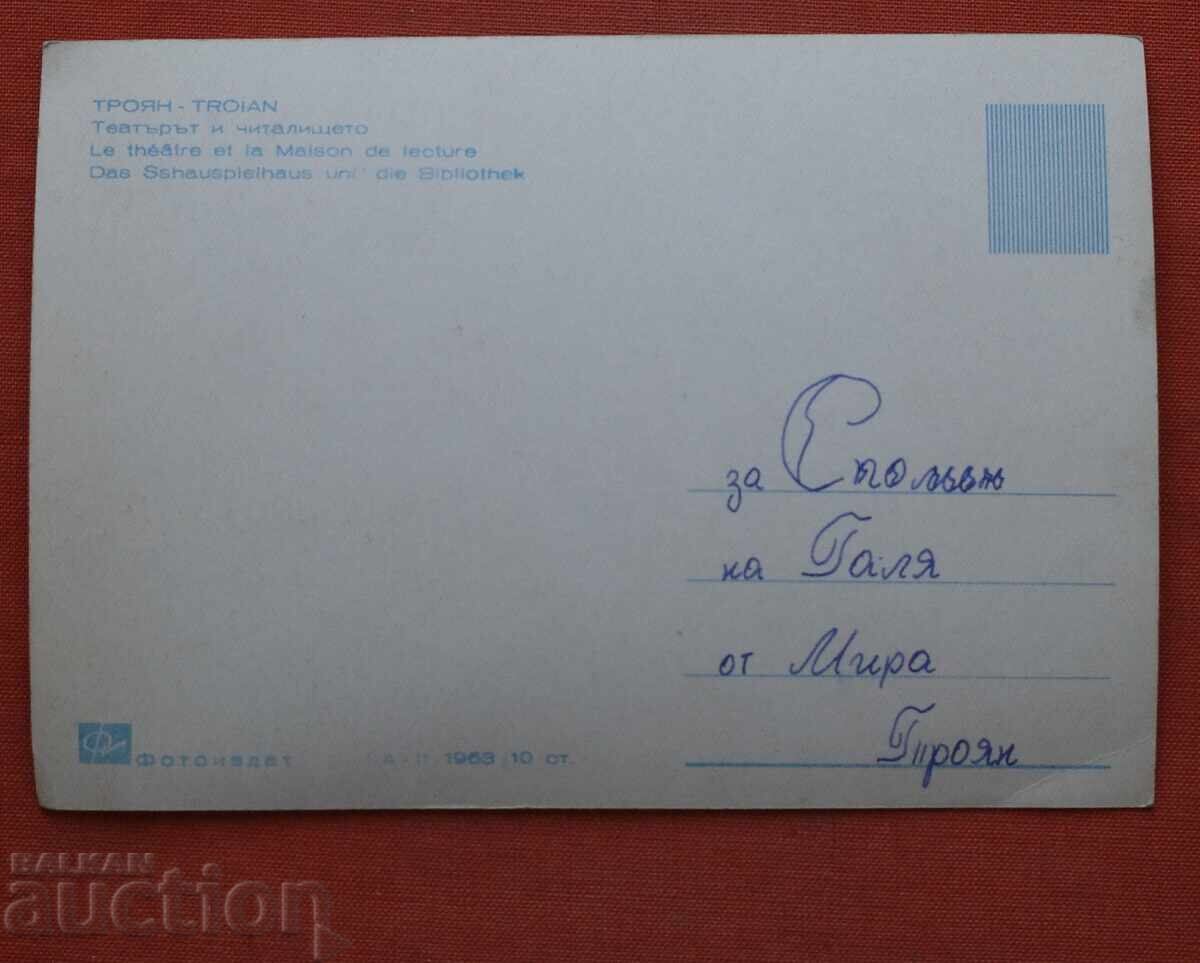 ТРОЯН - TROIAN
Театърът и читалището
Le théâtre et la Maison de lecture
Das Sshauspielhaus und die Bibliothek
за
на Галя
от Мира
Троян
Фотоиздат 1963 10 ст.
BALKAN
auction